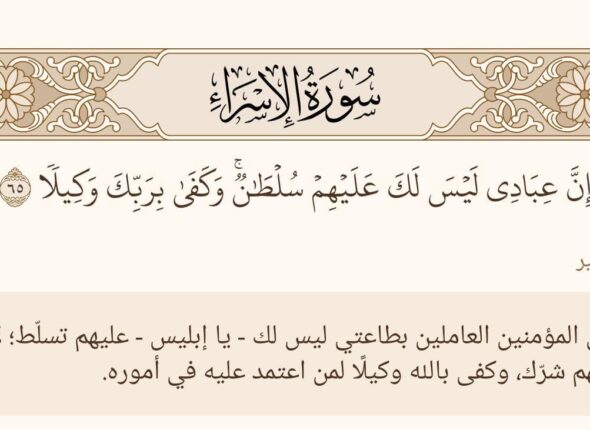 سُورَةُ الإِسْرَاءِ
إِنَّ عِبَادِي لَيْسَ لَكَ عَلَيْهِمْ سُلْطَٰنٌ ۚ وَكَفَىٰ بِرَبِّكَ وَكِيلًا ٦٥
المؤمنين العاملين بطاعتي ليس لك - يا إبليس - عليهم تسلّط؛
شرّك، وكفى بالله وكيلًا لمن اعتمد عليه في أموره.